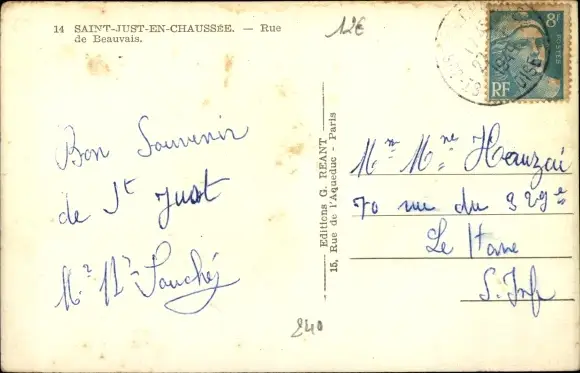 14 SAINT-JUST-EN-CHAUSSÉE. — Rue
de Beauvais.
12€
8F
POSTES
RF
OISE
Bon Souvenir
de St Just
Mr Mr
Editions G. RÉANT
15, Rue de l'Aqueduc - Paris
Mr Mme
70 rue du 329e
Le Havre
S. Infre
240